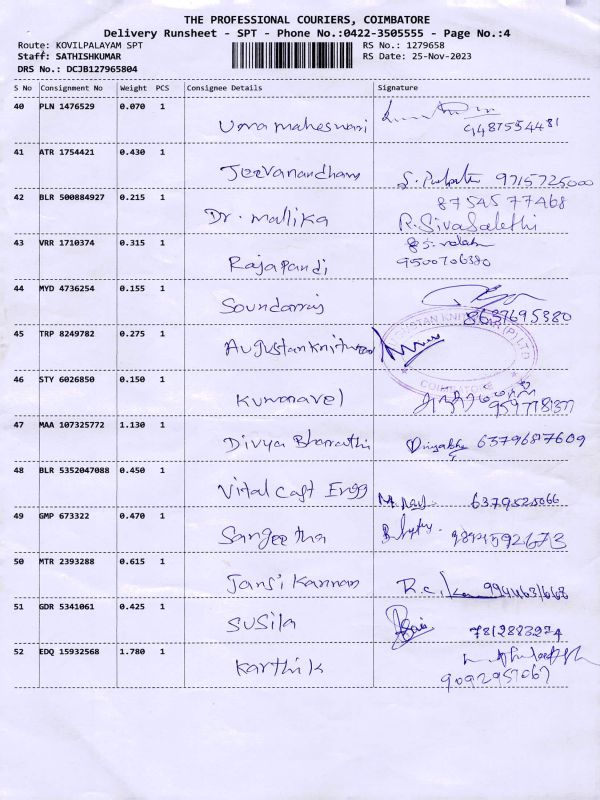 THE PROFESSIONAL COURIERS, COIMBATORE
Delivery Runsheet - SPT - Phone No.:0422-3505555 - Page No.:4
Route: KOVILPALAYAM SPT RS No.: 1279658
Staff: SATHISHKUMAR RS Date: 25-Nov-2023
DRS No.: DCJB127965804
S No Consignment No Weight PCS Consignee Details Signature
40 PLN 1476529 0.070 1
Uma maheswari 9487554481
41 ATR 1754421 0.430 1
Jeevanandham 9715725000
42 BLR 500884927 0.215 1 87545 77468
Dr. mallika R. Sivasakthi
43 VRR 1710374 0.315 1
Rajapandi 9500706380
44 MYD 4736254 0.155 1
Soundarraj 8637695380
45 TRP 8249782 0.275 1
Augustan knitwear
COIMBATORE
46 STY 6026850 0.150 1
Kumaravel
47 MAA 107325772 1.130 1
Divya Bharathi 6379687609
48 BLR 5352047088 0.450 1
Vital Cast Engg 6379525066
49 GMP 673322 0.470 1
Sangeetha
50 MTR 2393288 0.615 1
Jansi Kannan
51 GDR 5341061 0.425 1
Susila 7812883274
52 EDQ 15932568 1.780 1
Karthik 9092957067